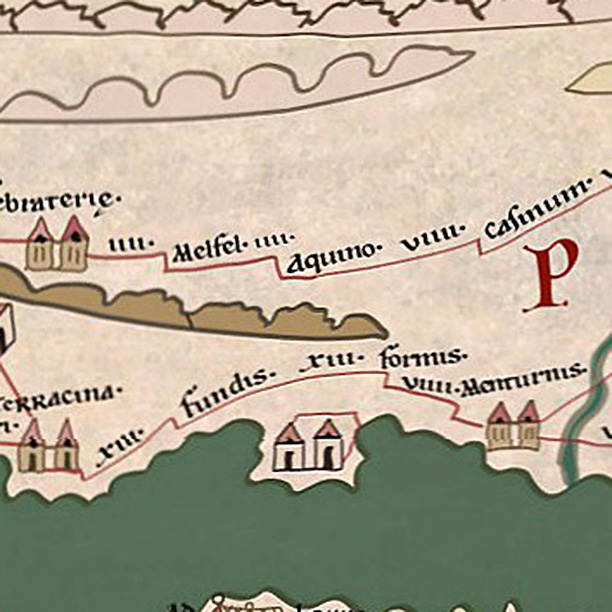 ebraterie.
IIII. Melfel. IIII. Aquino. VIIII. Casinum.
P
Terracina. XIII. fundis. XIII. formis. VIIII. Menturnis.